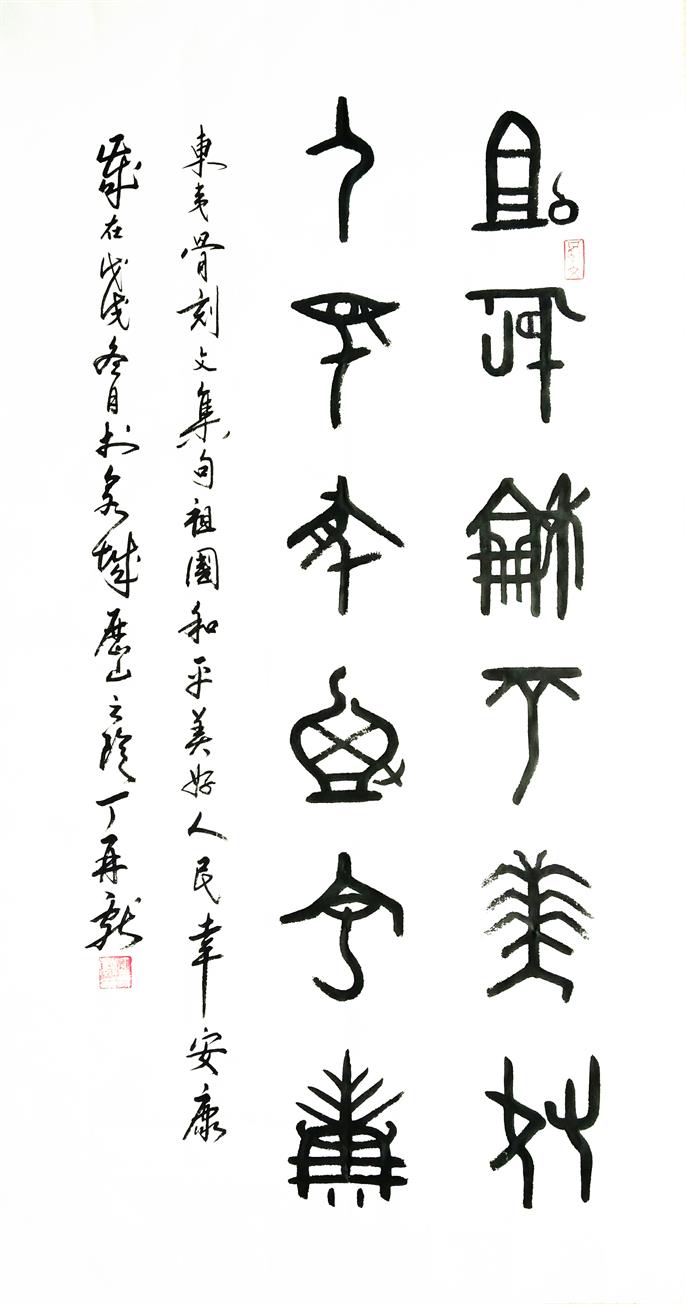 祖國和平美好
人民幸福安康
東夷骨刻文集句祖國和平美好人民幸安康
歲在戊戌冬月於泉城歷山之陰丁再獻